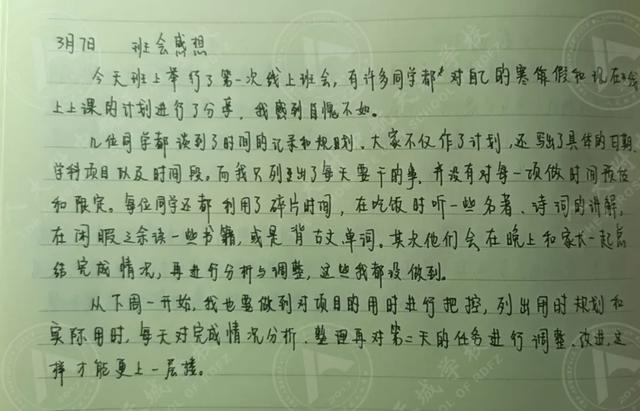 3月7日 班会感想
今天班上举行了第一次线上班会,有许多同学都对自己的寒假和现在线
上上课的计划进行了分享,我感到自愧不如。
几位同学都谈到了时间的记录和规划,大家不仅作了计划,还写出了具体的日期
学科项目以及时间段。而我只列出了每天要干的事,并没有对每一项做时间预估
和限定。每位同学还都利用了碎片时间,在吃饭时听一些名著、诗词的讲解,
在闲暇之余读一些书籍,或是背古文单词。其次他们会在晚上和家长一起总
结完成情况,再进行分析与调整,这些我都没做到。
从下周一开始,我也要做到对项目的用时进行把控,列出用时规划和
实际用时,每天对完成情况分析、整理再对第二天的任务进行调整、改进,这
样才能更上一层楼。